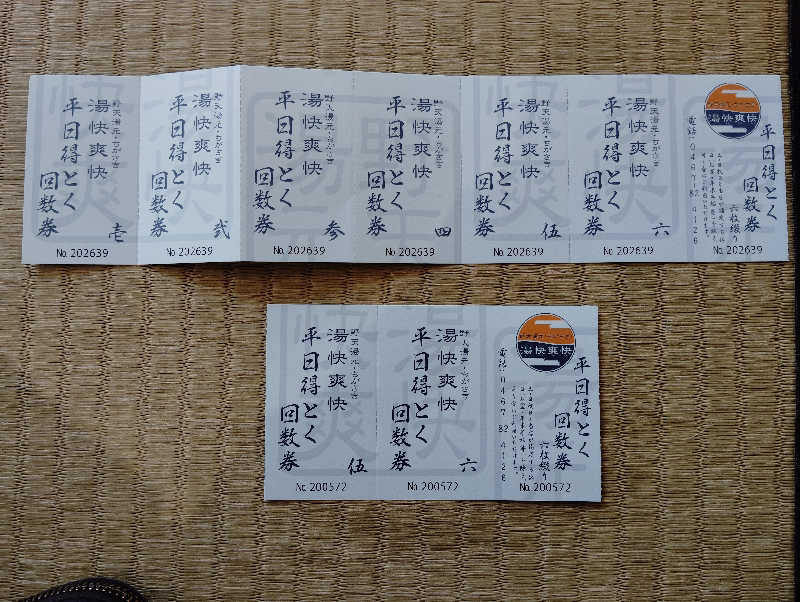 野天湯元・ちがさき
湯快爽快
平日得とく
回数券
壱
No. 202639
野天湯元・ちがさき
湯快爽快
平日得とく
回数券
弐
No. 202639
野天湯元・ちがさき
湯快爽快
平日得とく
回数券
参
No. 202639
野天湯元・ちがさき
湯快爽快
平日得とく
回数券
四
No. 202639
野天湯元・ちがさき
湯快爽快
平日得とく
回数券
伍
No. 202639
野天湯元・ちがさき
湯快爽快
平日得とく
回数券
六
No. 202639
湯快爽快
平日得とく
回数券
六枚綴り
電話:0467 82 4126
No. 202639
野天湯元・ちがさき
湯快爽快
平日得とく
回数券
伍
No. 200572
野天湯元・ちがさき
湯快爽快
平日得とく
回数券
六
No. 200572
湯快爽快
平日得とく
回数券
六枚綴り
電話:0467 82 4126
No. 200572